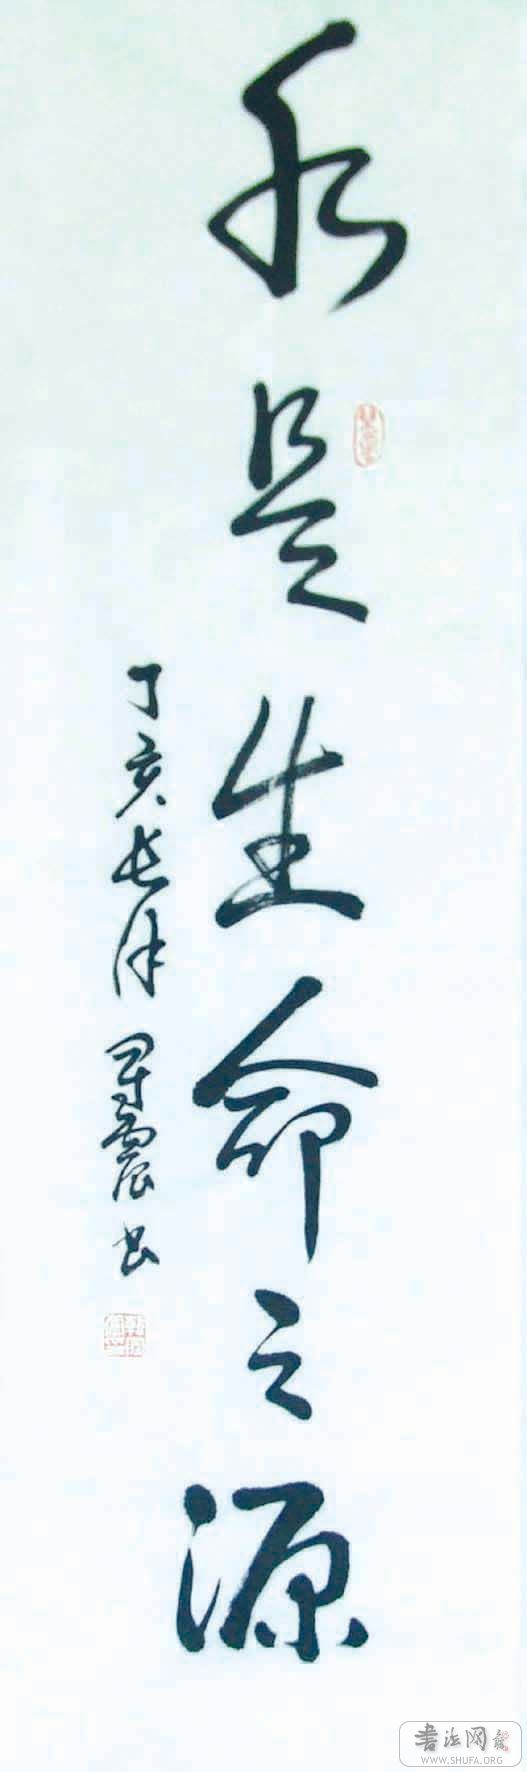 水是生命之源
丁亥長津
震书
書法网
WWW.SHUFA.ORG